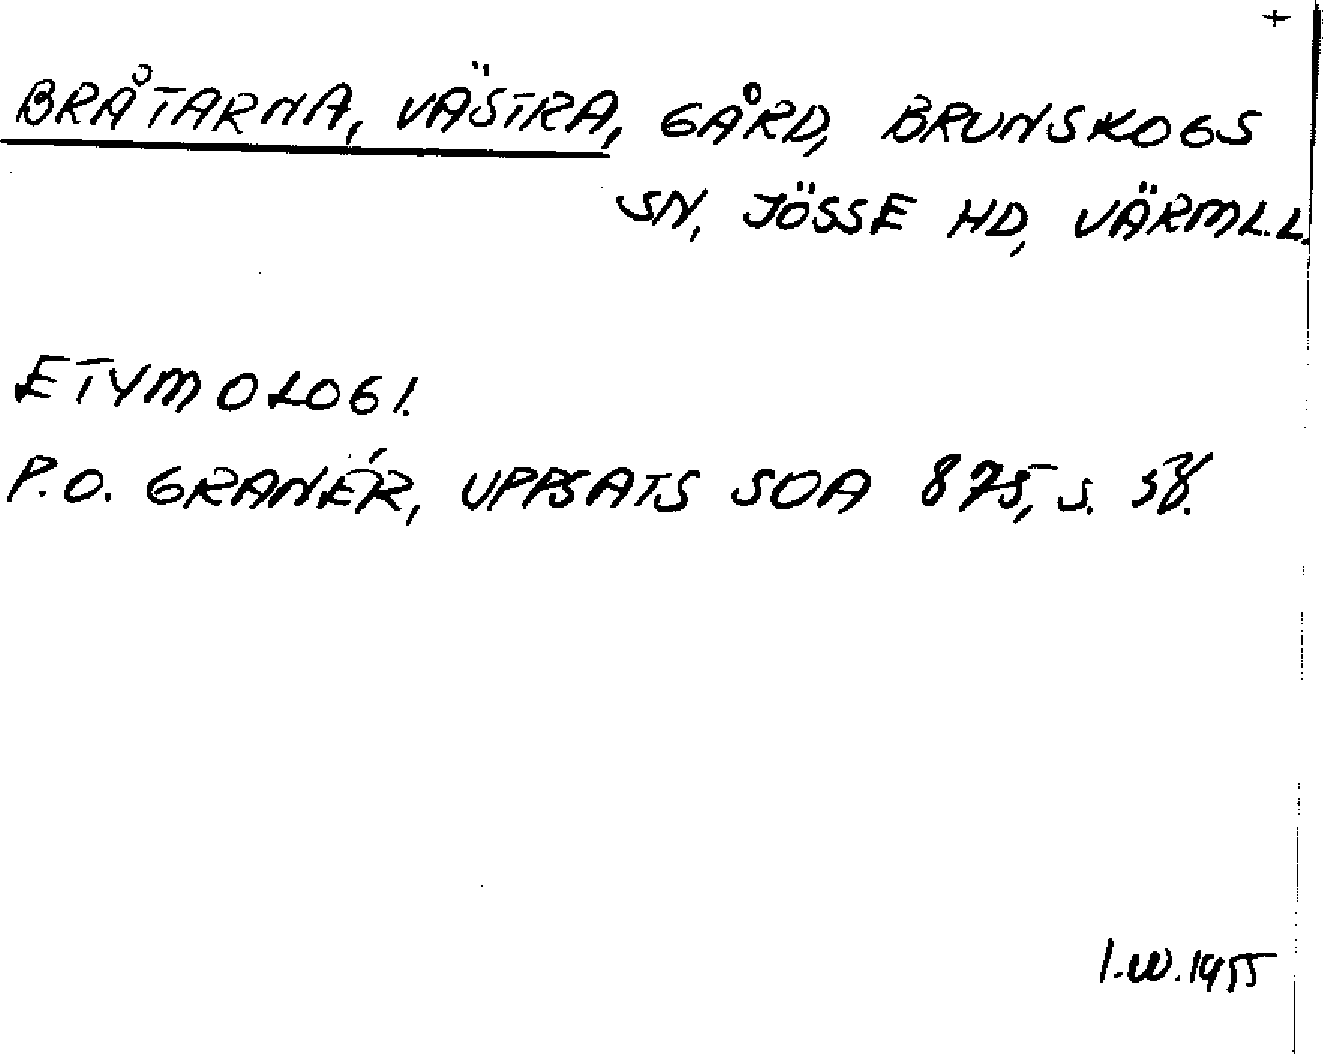 +
BRÅTARNA, VÄSTRA, GÅRD, BRUNSKOGS
SN, JÖSSE HD, VÄRML.L.
ETYMOLOGI.
P.O. GRANÉR, UPPSATS SOA 875, s. 58.
I.W.1955